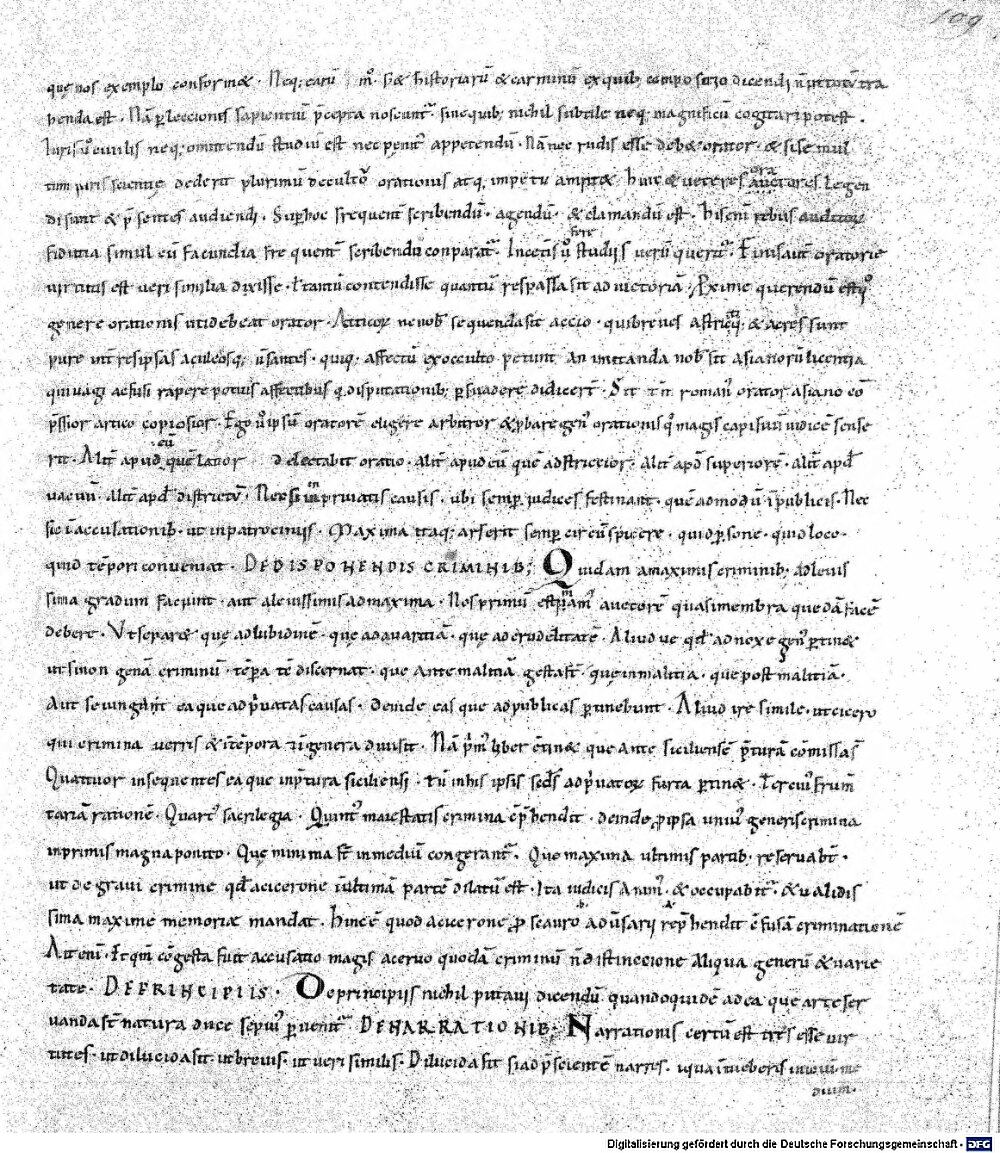 109
quę nos exemplo conformæ · Neq; earū m° sꝫ & historiarū & carminū ex quib; compositio dicendi
henda est · Nā p̲ lecciones sapientiū p̄cepta noscunt᷑ · sine quib; nichil subtile neq; magnificū cogitari potest ·
Iuris ū civilis neq; omittendū studiū est nec penit᷒ appetendū · Nā nec rudis esse debæ orator · & si se mul
tum iuris scientię dederit plurimū de cultu orationis atq; impetu amittæ · hinc & veteres auctores legen
di sunt & p̄sentes audiendi · Sup̲ hoc frequent̄ scribendū · agendū · & clamandū est · his enī rebus
fidutia simul cū facundia frequent̄ scribendū conparat᷑ · Incertis ū fere studiis verū querit᷑ · Finis aut̄ oratorię
virtutis est veri similia dixisse · t̄ tantū contendisse quantū res passa sit ad victoriā · Maxime querendū est q°
genere orationis uti debeat orator · Atticoꝝ ne nob̄ sequenda sit accio · qui breves astricti q; & acres sunt
pure int res ipsas aculeosq; versantes · quiq; affectū ex occulto petunt an imitanda nob̄ sit asianorū licentia
qui vagi ac fusi rapere potius affectibus q̄ disputationib; p̲suadere didicer̄ · Sit t̄n roman᷒ orator asiano
p̄ssior attico copiosior · Ego ū ipsū oratorē eligere arbitror & p̱bare gen᷒ orationis q° magis capi suū iudicē sense
rit · Alit̄ apud eū quē labor delectabit oratio · alit̄ apud eū quē adstriccior · alit̄ apd̄ superiorē · alit̄ apd̄
vacuū · alit̄ apd̄ districtū · Nec sic in privatis causis · ubi semp̲ iudices festinant · quē admodū ī publicis · Nec
sic ī accusationib; ut in patrociniis · Maxima itaq; ars erit semp̲ circūspicere · quid p̲sone · quid loco ·
quid tēpori conveniat · DE DISPONENDIS CRIMINIB; Quidam a maximis criminib; ad levis
sima gradum faciunt · aut a levissimis ad maxima · Nos primū auctorē quasi membra quedā facē
debere · Ut separæ quę ad lubidinē · quę ad avaritiā · quę ad crudelitatē · Aliudve qd̄ ad noxę gen᷒ p̲tinæ
ut si non genā criminū · tēpa tē discernat · quę ante malitiā gesta st̄ · quę in malitia · quę post malitiā ·
Aut seiungant ea quę ad p̄vatas causas · deinde eas quę ad publicas p̲tinebunt · Aliud ire simile · ut cicero
qui crimina verris & ī tēpora & ī genera divisit · Nā p̄m᷒ liber ctinæ quę ante siciliensē p̄turā comissa st̄
Quattuor insequentes ea quę in p̄tura siciliensi · tū in his ipsis scd̄s ad p̄vatoꝝ furta p̲tinæ · Terci᷒ frum̄
tariā rationē · Quart᷒ sacrilegia · Quint᷒ maiestatis crimina cp̄hendit · deinde p̱ ipsa uni᷒ generis crimina
in primis magna ponito · Quę minima st̄ in mediū congerant᷑ · Quę maxima ultimis partib; reservabt̄ ·
ut de gravi crimine qd̄ a cicerone ī ultimā partē dilatū est · Ita iudicis anim᷒ · & occupabit᷑ · & validis
sima maxime memoriæ mandat · hinc ē quod a cicerone p̱ scauro adūsarii rep̄hendit cfusā criminationē
Ait enī · Et qm̄ cōgesta fuit accusatio magis acervo quodā criminū n̄ distinccione aliqua generū & varie
tate · DE PRINCIPIIS · De principiis nichil putavi dicendū quandoquidē ad ea quę arte ser
vanda st̄ natura duce sepi᷒ p̲venit᷑ · DE NARRATIONIB; Narrationis certū est tres esse vir
tutes · ut dilucida sit · ut brevis · ut veri similis · Dilucida sit si ad p̄scientē narres ·
dium ·
Digitalisierung gefördert durch die Deutsche Forschungsgemeinschaft - DFG